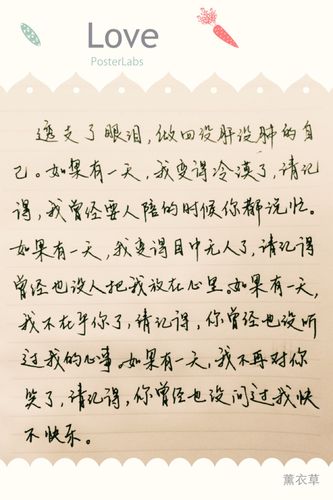 Love
PosterLabs
透支了眼泪，做回没肝没肺的自
己。如果有一天，我变得冷漠了，请记
得，我曾经要人陪的时候你都说忙。
如果有一天，我变得目中无人了，请记得
曾经也没人把我放在心里。如果有一天，
我不在乎你了，请记得，你曾经也没听
过我的心事。如果有一天，我不再对你
笑了，请记得，你曾经也没问过我快
不快乐。
薰衣草